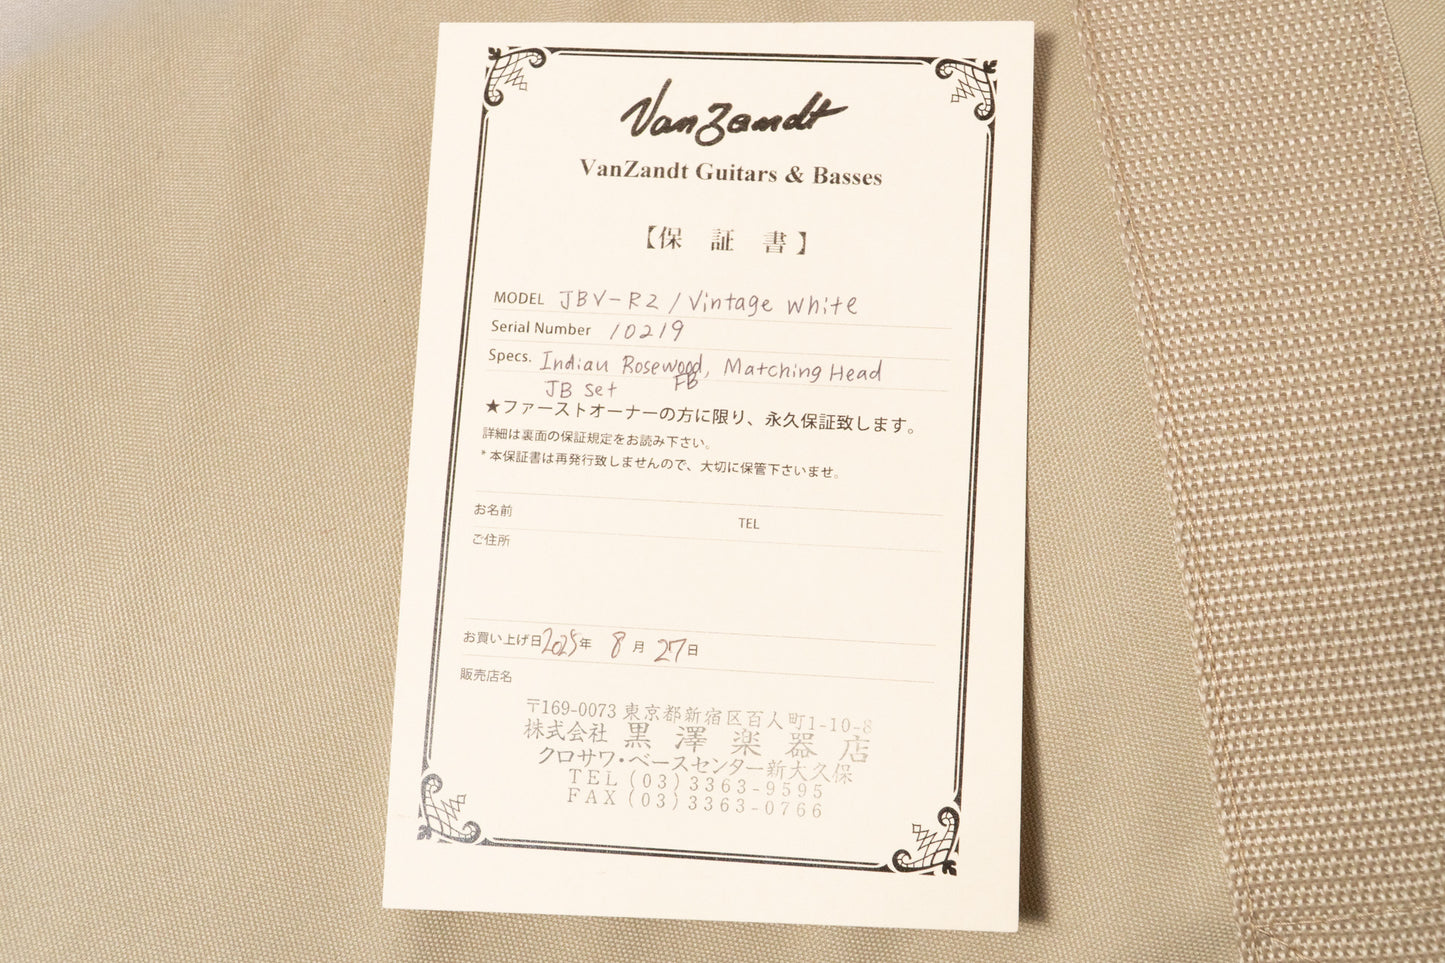 VanZandt
VanZandt Guitars & Basses
【保 証 書】
MODEL JBV-R2 / Vintage White
Serial Number 10219
Specs. Indian Rosewood, Matching Head
JB Set FB
★ファーストオーナーの方に限り、永久保証致します。
詳細は裏面の保証規定をお読み下さい。
*本保証書は再発行致しませんので、大切に保管下さいませ。
お名前 TEL
ご住所
お買い上げ日 2025年 8月 27日
販売店名
〒169-0073 東京都新宿区百人町1-10-8
株式会社 黒澤楽器店
クロサワ・ベースセンター新大久保
TEL (03)3363-9595
FAX (03)3363-0766